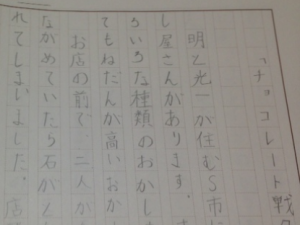 「チョコレート戦
明と光一が住むS市
し屋さんがあります。
ろいろな種類のおかし
てもねだんが高いおか
お店の前で、二人が
ながめていたら石がと
れてしまいました。店